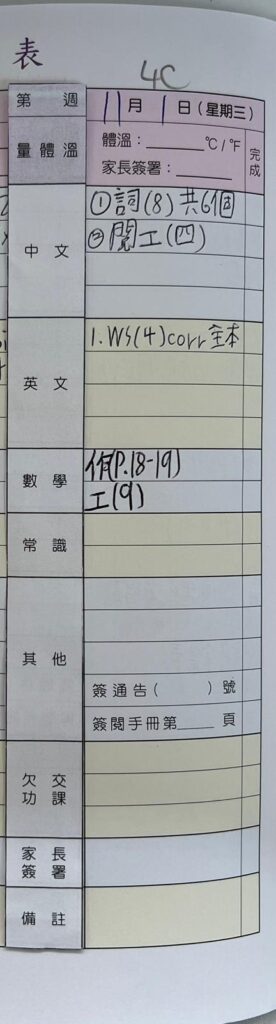 表
4C
第 週
11月 1日(星期三)
量體溫
體溫:______°C/°F
家長簽署:______
完成
中文
①詞(8) 共6個
②閱工(四)
英文
1.WS(4)corr 全本
數學
作(P.18-19)
工(9)
常識
其他
簽通告( )號
簽閱手冊第____頁
欠交功課
家長簽署
備註